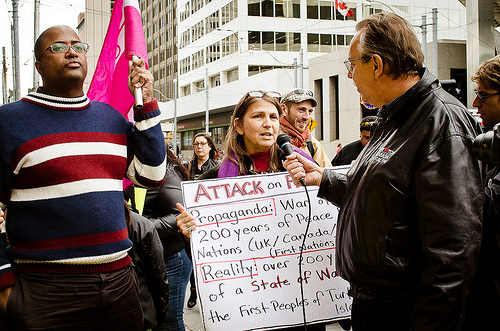 ATTACK on
Propaganda: War o
200 years of Peace
Nations (UK/Canada/
(First Nations
Reality: over 200 y
of a State of Wa
the First Peoples of Tur
Isl